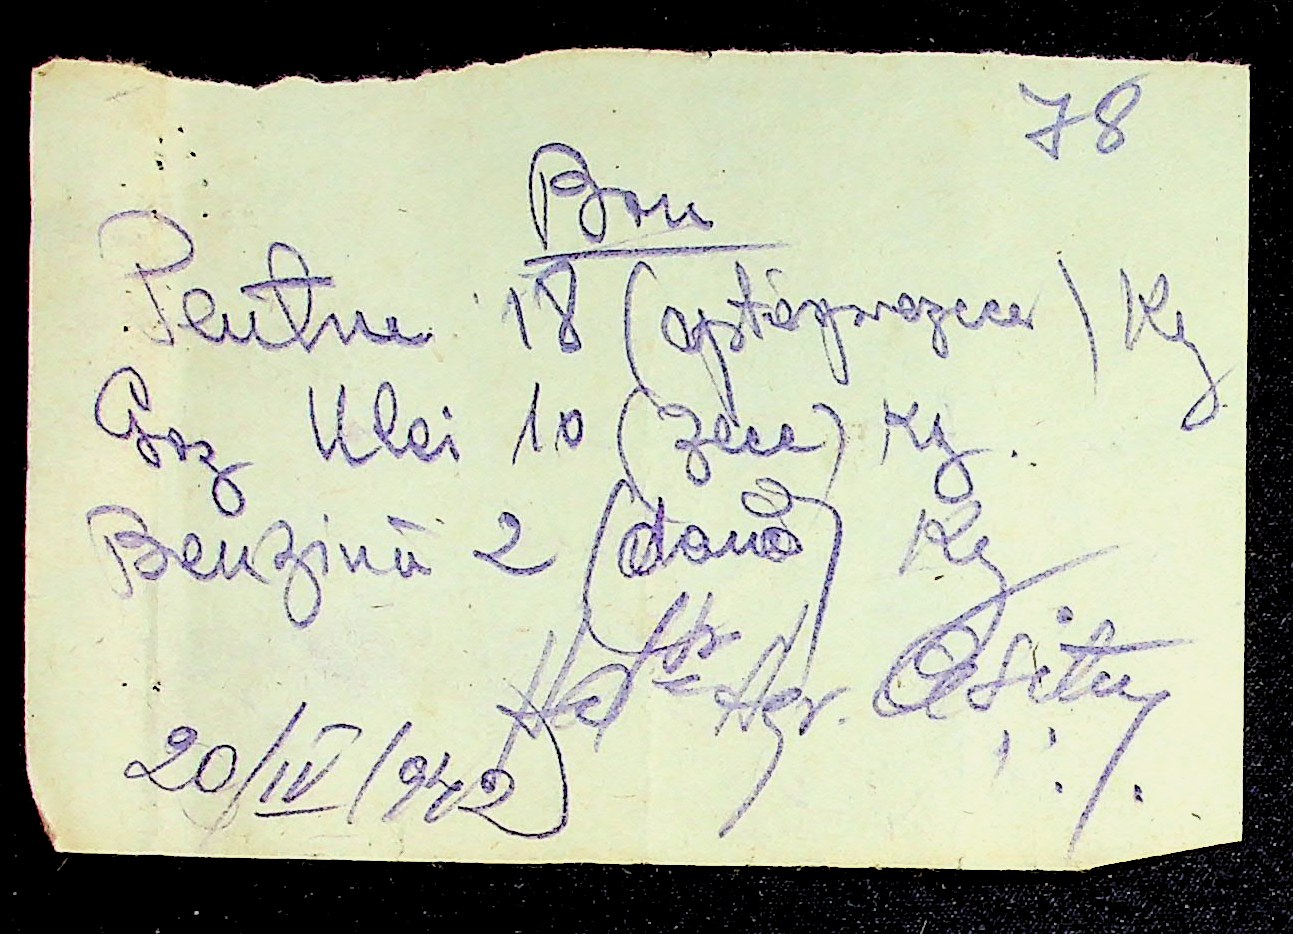 78
Bon
Pentru 18 (optsprezece) Kg
Gaz Ulei 10 (zece) Kg.
Benzină 2 (două) Kg
20/IV/942